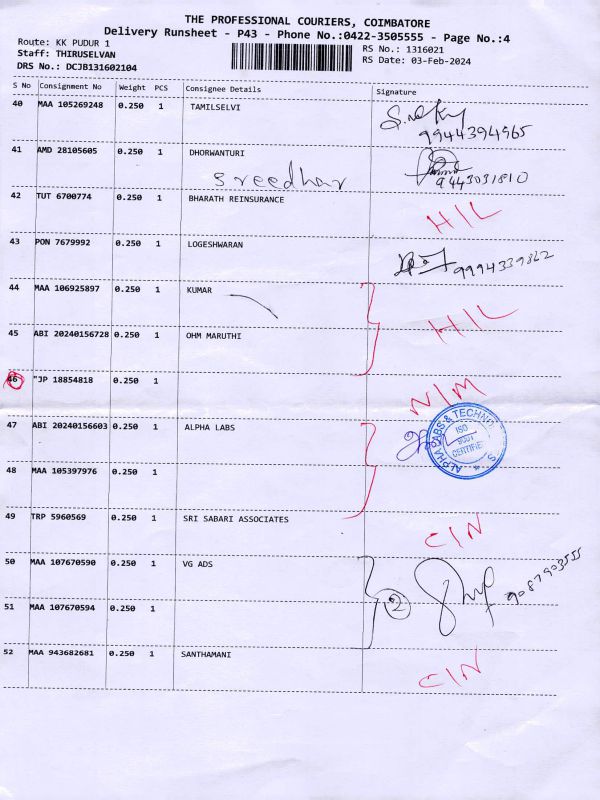 THE PROFESSIONAL COURIERS, COIMBATORE
Delivery Runsheet - P43 - Phone No.:0422-3505555 - Page No.:4
Route: KK PUDUR 1
RS No.: 1316021
Staff: THIRUSELVAN
RS Date: 03-Feb-2024
DRS No.: DCJB131602104
S No Consignment No Weight PCS Consignee Details Signature
40 MAA 105269248 0.250 1 TAMILSELVI
9944394965
41 AMD 28105605 0.250 1 DHORWANTURI
sreedhar 9443031810
42 TUT 6700774 0.250 1 BHARATH REINSURANCE H/L
43 PON 7679992 0.250 1 LOGESHWARAN
9994339862
44 MAA 106925897 0.250 1 KUMAR
H/L
45 ABI 20240156728 0.250 1 OHM MARUTHI
46 "JP 18854818 0.250 1
N/M
47 ABI 20240156603 0.250 1 ALPHA LABS
ALPHA LABS & TECHNO
ISO
9001
CERTIFIE
48 MAA 105397976 1
49 TRP 5960569 0.250 1 SRI SABARI ASSOCIATES C/N
50 MAA 107670590 0.250 1 VG ADS
2 9087903555
51 MAA 107670594 0.250 1
52 MAA 943682681 0.250 1 SANTHAMANI C/N